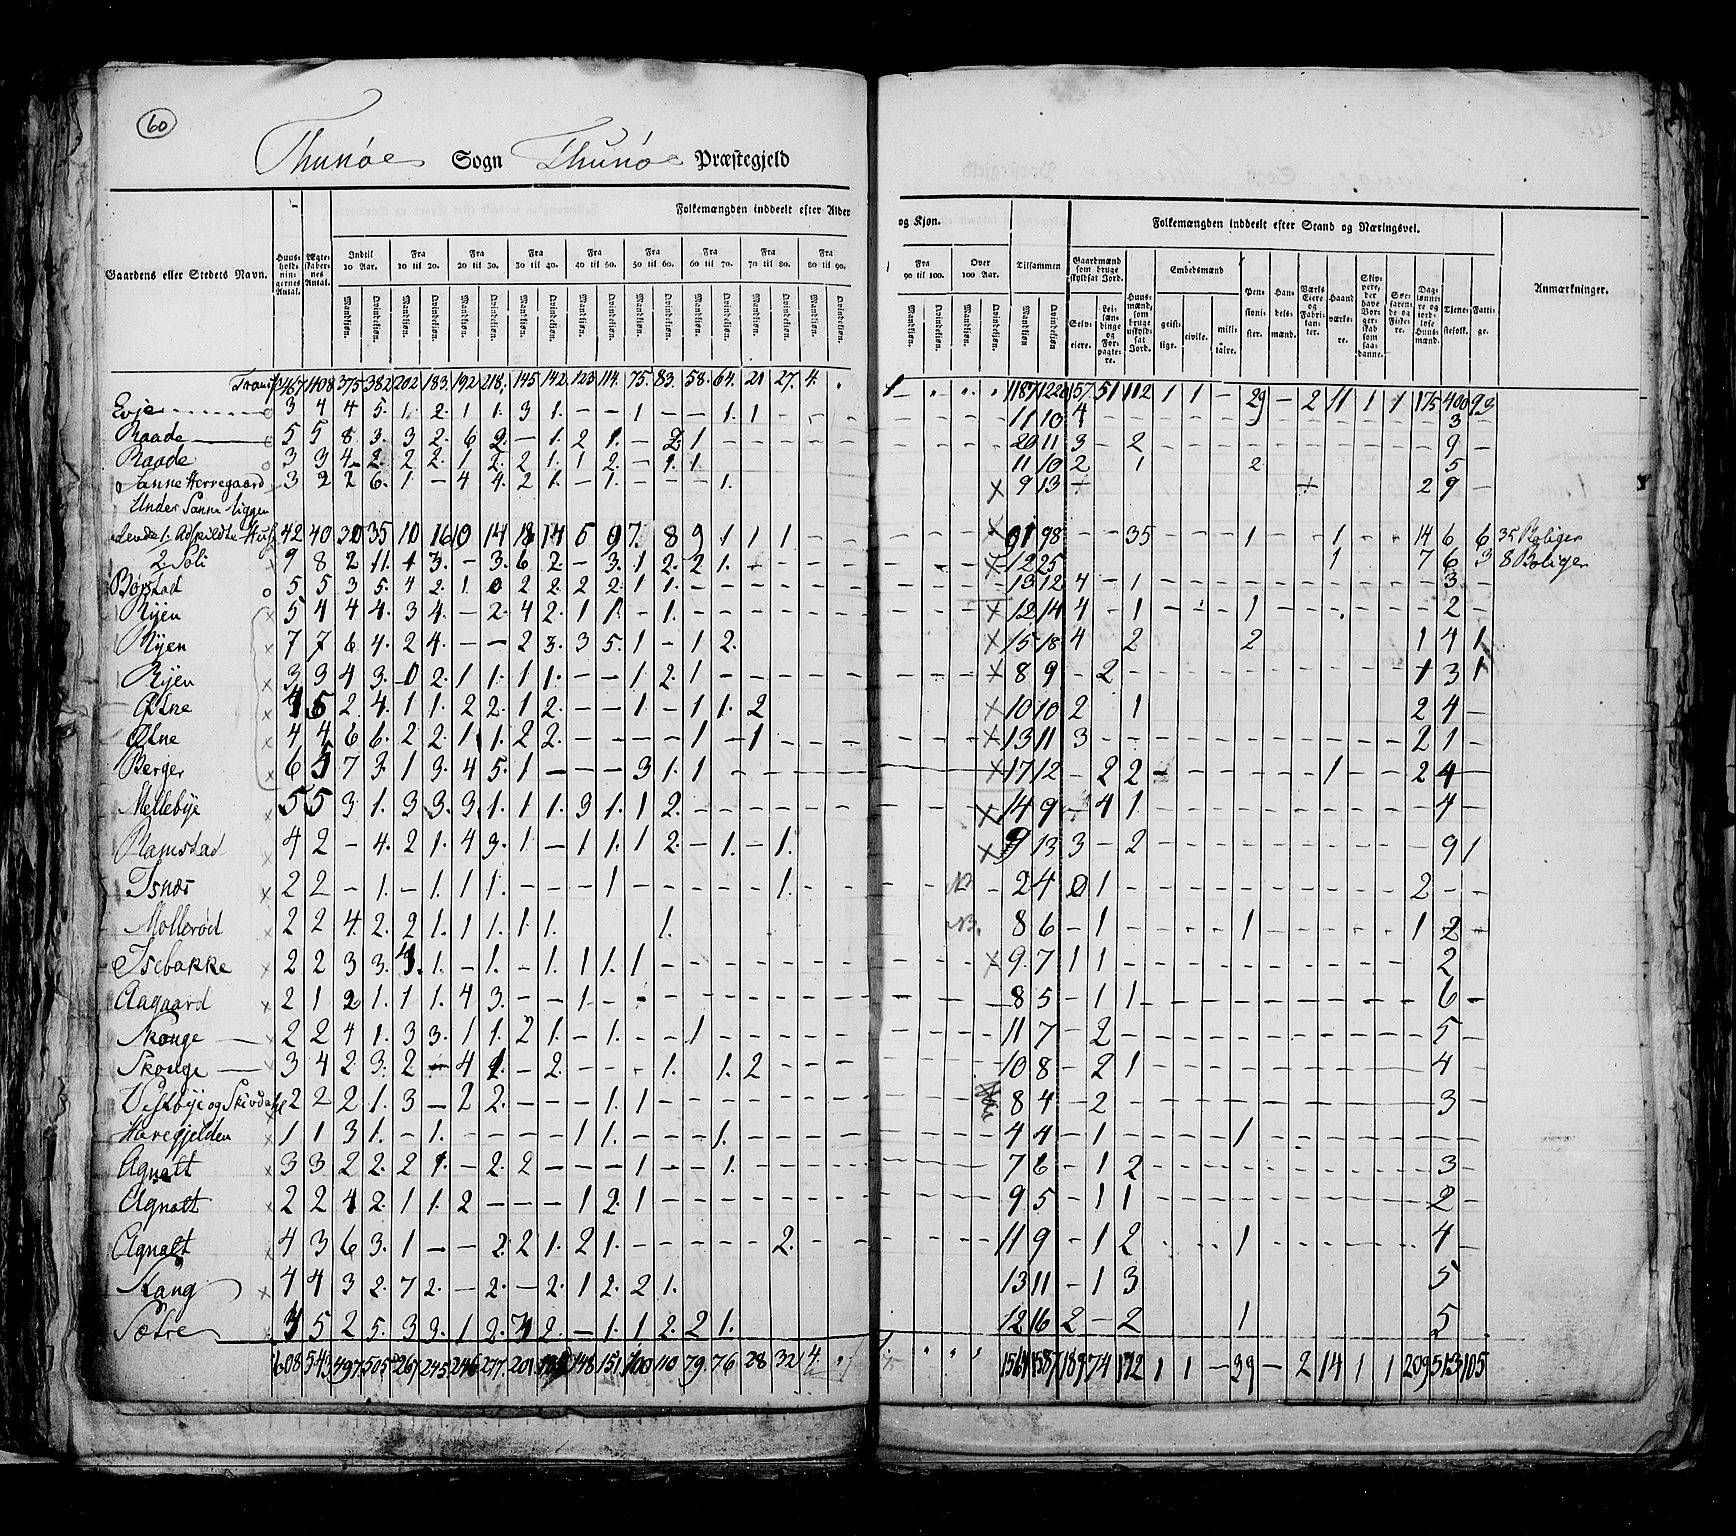 60
Thunøe Sogn Thunøe Præstegjeld
Folkemængden inddeelt efter Alder og Kjøn.
Folkemængden inddeelt efter Stand og Næringsvei.
Gaardens eller Stedets Navn.
Huusholdningernes Antal.
Ægteskabernes Antal.
Indtil 10 Aar.
Fra 10 til 20.
Fra 20 til 30.
Fra 30 til 40.
Fra 40 til 50.
Fra 50 til 60.
Fra 60 til 70.
Fra 70 til 80.
Fra 80 til 90.
Fra 90 til 100.
Over 100 Aar.
Tilsammen
Mandkjøn. Qvindekjøn.
Gaardmænd som bruge skyldsat Jord.
Selveiere.
Leilændinge og Forpagtere.
Huusmænd, som bruge uskyldsat Jord.
Embedsmænd
geistlige. civile. militaire.
Pensionister.
Handelsmænd.
Værks Eiere og Fabrikanter.
Haandværkere.
Skippere, der have Borgerskab som saadanne.
Søefarende og Fiskere.
Daglønnere og jordløse Huusmænd.
Tjenestefolk.
Fattige.
Anmærkninger.
Transp. 467 408 375 382 202 183 192 218 145 142 123 114 75 83 58 64 21 27 4 1 1187 1220 157 51 112 1 1 - 29 - 2 11 1 1 175 400 93
Evje 3 4 4 5 1 2 1 1 3 1 - - 1 - - 1 1 - - 11 10 4 3
Raade 5 5 8 3 3 2 6 2 - 1 2 1 - 2 1 20 11 3 - 2 9
Raade 3 3 4 2 2 2 1 2 2 1 1 2 - 1 1 11 10 2 1 2 5
Sanne Herregaard 3 2 2 6 1 - 4 4 2 1 - 1 - - - 1 9 13 2 9
Under Sanne liggen
42 40 30 35 10 16 14 14 8 9 1 1 1 98 35 1 1 14 6 6 35 Boliger
2. Soli 9 8 2 11 1 3 - 3 6 2 - 3 1 2 2 1 12 25 1 7 6 3 8 Boliger
Børstad 5 5 3 5 4 2 1 0 2 2 2 2 1 1 13 12 4 - 1 3
Ryen 5 4 4 4 3 4 - 2 4 2 1 1 - 1 12 14 4 - 1 1 2
Ryen 7 7 6 4 2 4 - - 2 3 3 5 1 - 1 2 15 18 4 2 2 1 4 1
Ryen 3 3 4 3 0 2 1 1 1 1 - - 1 2 1 8 9 - 2 1 3 1
2 4 1 1 2 2 1 2 - - 1 - 1 1 2 10 10 2 1 2 4
4 4 6 6 2 2 1 1 2 2 - - - - 1 - 1 13 11 3 2 1
Berger 6 5 7 3 1 3 4 5 1 - - - 3 1 1 17 12 - 2 2 1 2 4
Mellebye 5 5 3 1 3 3 3 1 1 1 3 1 1 2 14 9 4 1 4
Ramstad 4 2 - 4 2 1 4 3 1 - 1 1 1 2 - 1 - 1 9 13 3 - 2 9 1
Isnæs 2 2 - 1 - 1 1 1 - - - 1 - - - - - 1 NB. 2 4 0 1 2
Møllerød 2 2 4 2 2 1 1 1 1 1 1 NB. 8 6 - 1 1 1 2
Isebakke 2 2 3 3 1 - 1 - 1 1 1 1 9 7 1 1 2
Aagaard 2 1 2 1 1 1 4 3 - - 1 8 5 - 1 1 6
Skouge 2 2 4 1 3 3 1 1 2 1 - 1 - - 1 11 7 - 2 5
Skouge 3 4 2 3 2 - 4 1 - 2 - - - 1 - 1 2 10 8 - 2 1 4
2 2 2 1 3 - 2 2 - - - 1 1 8 4 - 2 3
Haregjelden 1 1 3 1 - 1 - - - - 1 1 - - - 1 4 4 - 1 1
Agnalt 3 3 2 2 2 1 - 2 2 - - - 1 - - 1 7 6 - 1 2 3
Agnalt 2 2 4 2 1 1 2 - - - 1 2 1 9 5 - 1 1 2
Agnalt 4 3 6 3 1 - - 2 2 1 2 1 - - - - - 2 11 9 - 1 2 1 4
Stang 4 4 3 2 7 2 - 2 - 2 1 2 2 1 13 11 - 1 3 5
Sætre 5 2 5 3 3 1 2 2 - 1 1 2 2 1 12 16 2 - 2 1 5
608 543 497 505 267 245 246 277 201 148 151 100 110 79 76 28 32 4 1 1564 1587 189 74 172 1 1 - 39 - 2 14 1 1 209 513 105